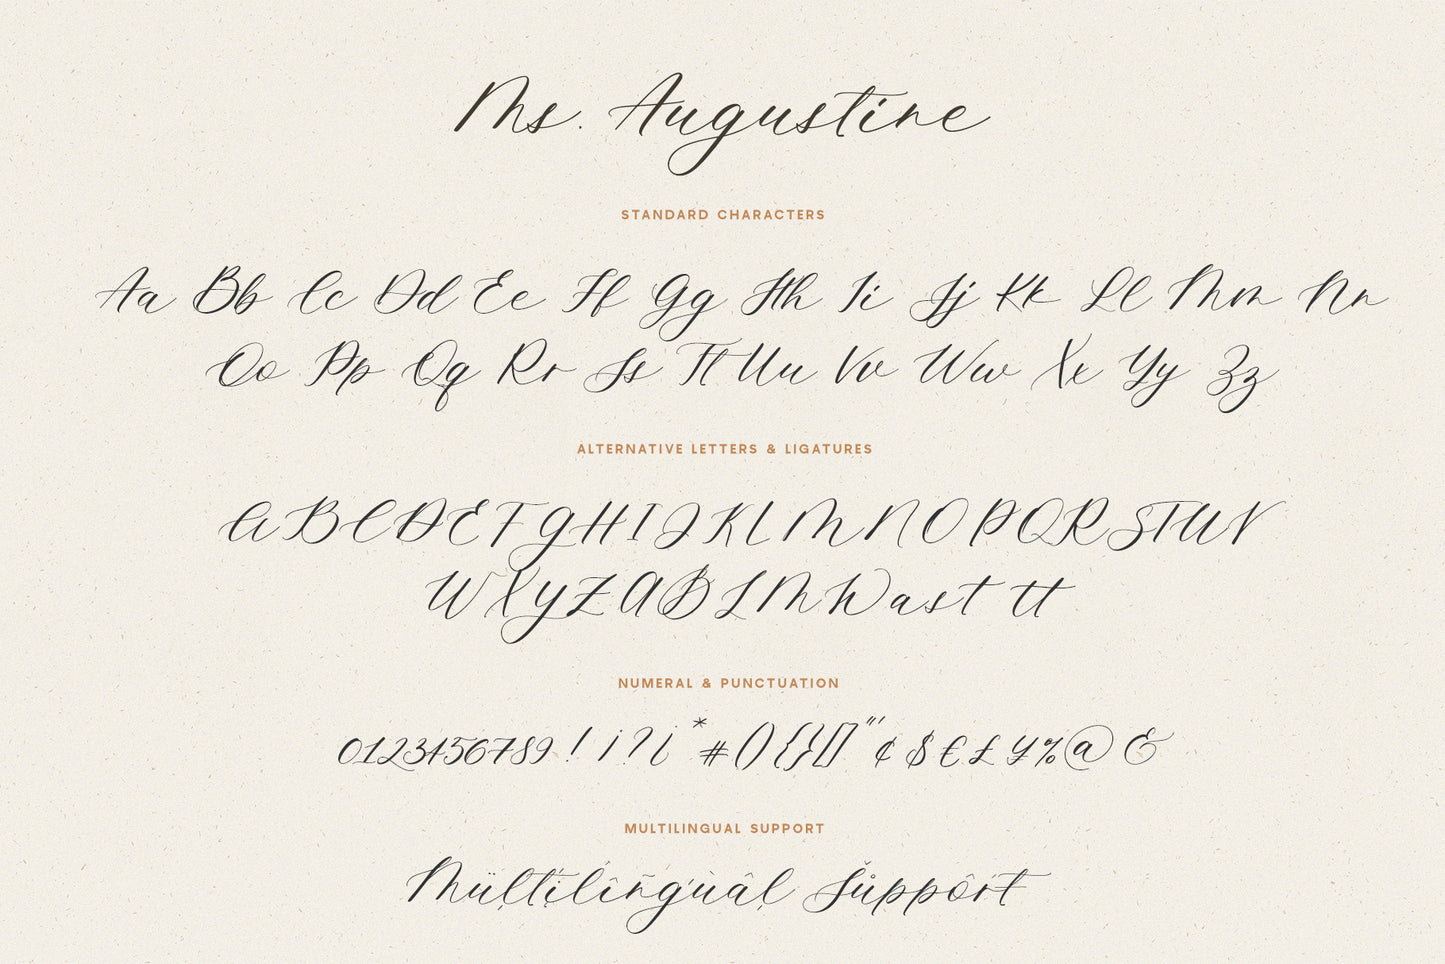 Ms. Augustine
STANDARD CHARACTERS
Aa Bb Cc Dd Ee Ff Gg Hh Ii Jj Kk Ll Mm Nn
Oo Pp Qq Rr Ss Tt Uu Vv Ww Xx Yy Zz
ALTERNATIVE LETTERS & LIGATURES
A B C D E F G H I J K L M N O P Q R S T U V
W X Y Z A B L M W a s t tt
NUMERAL & PUNCTUATION
0123456789 ! ¡ ? ¿ * # () {} [] "' ¢ $ € £ ¥ % @ &
MULTILINGUAL SUPPORT